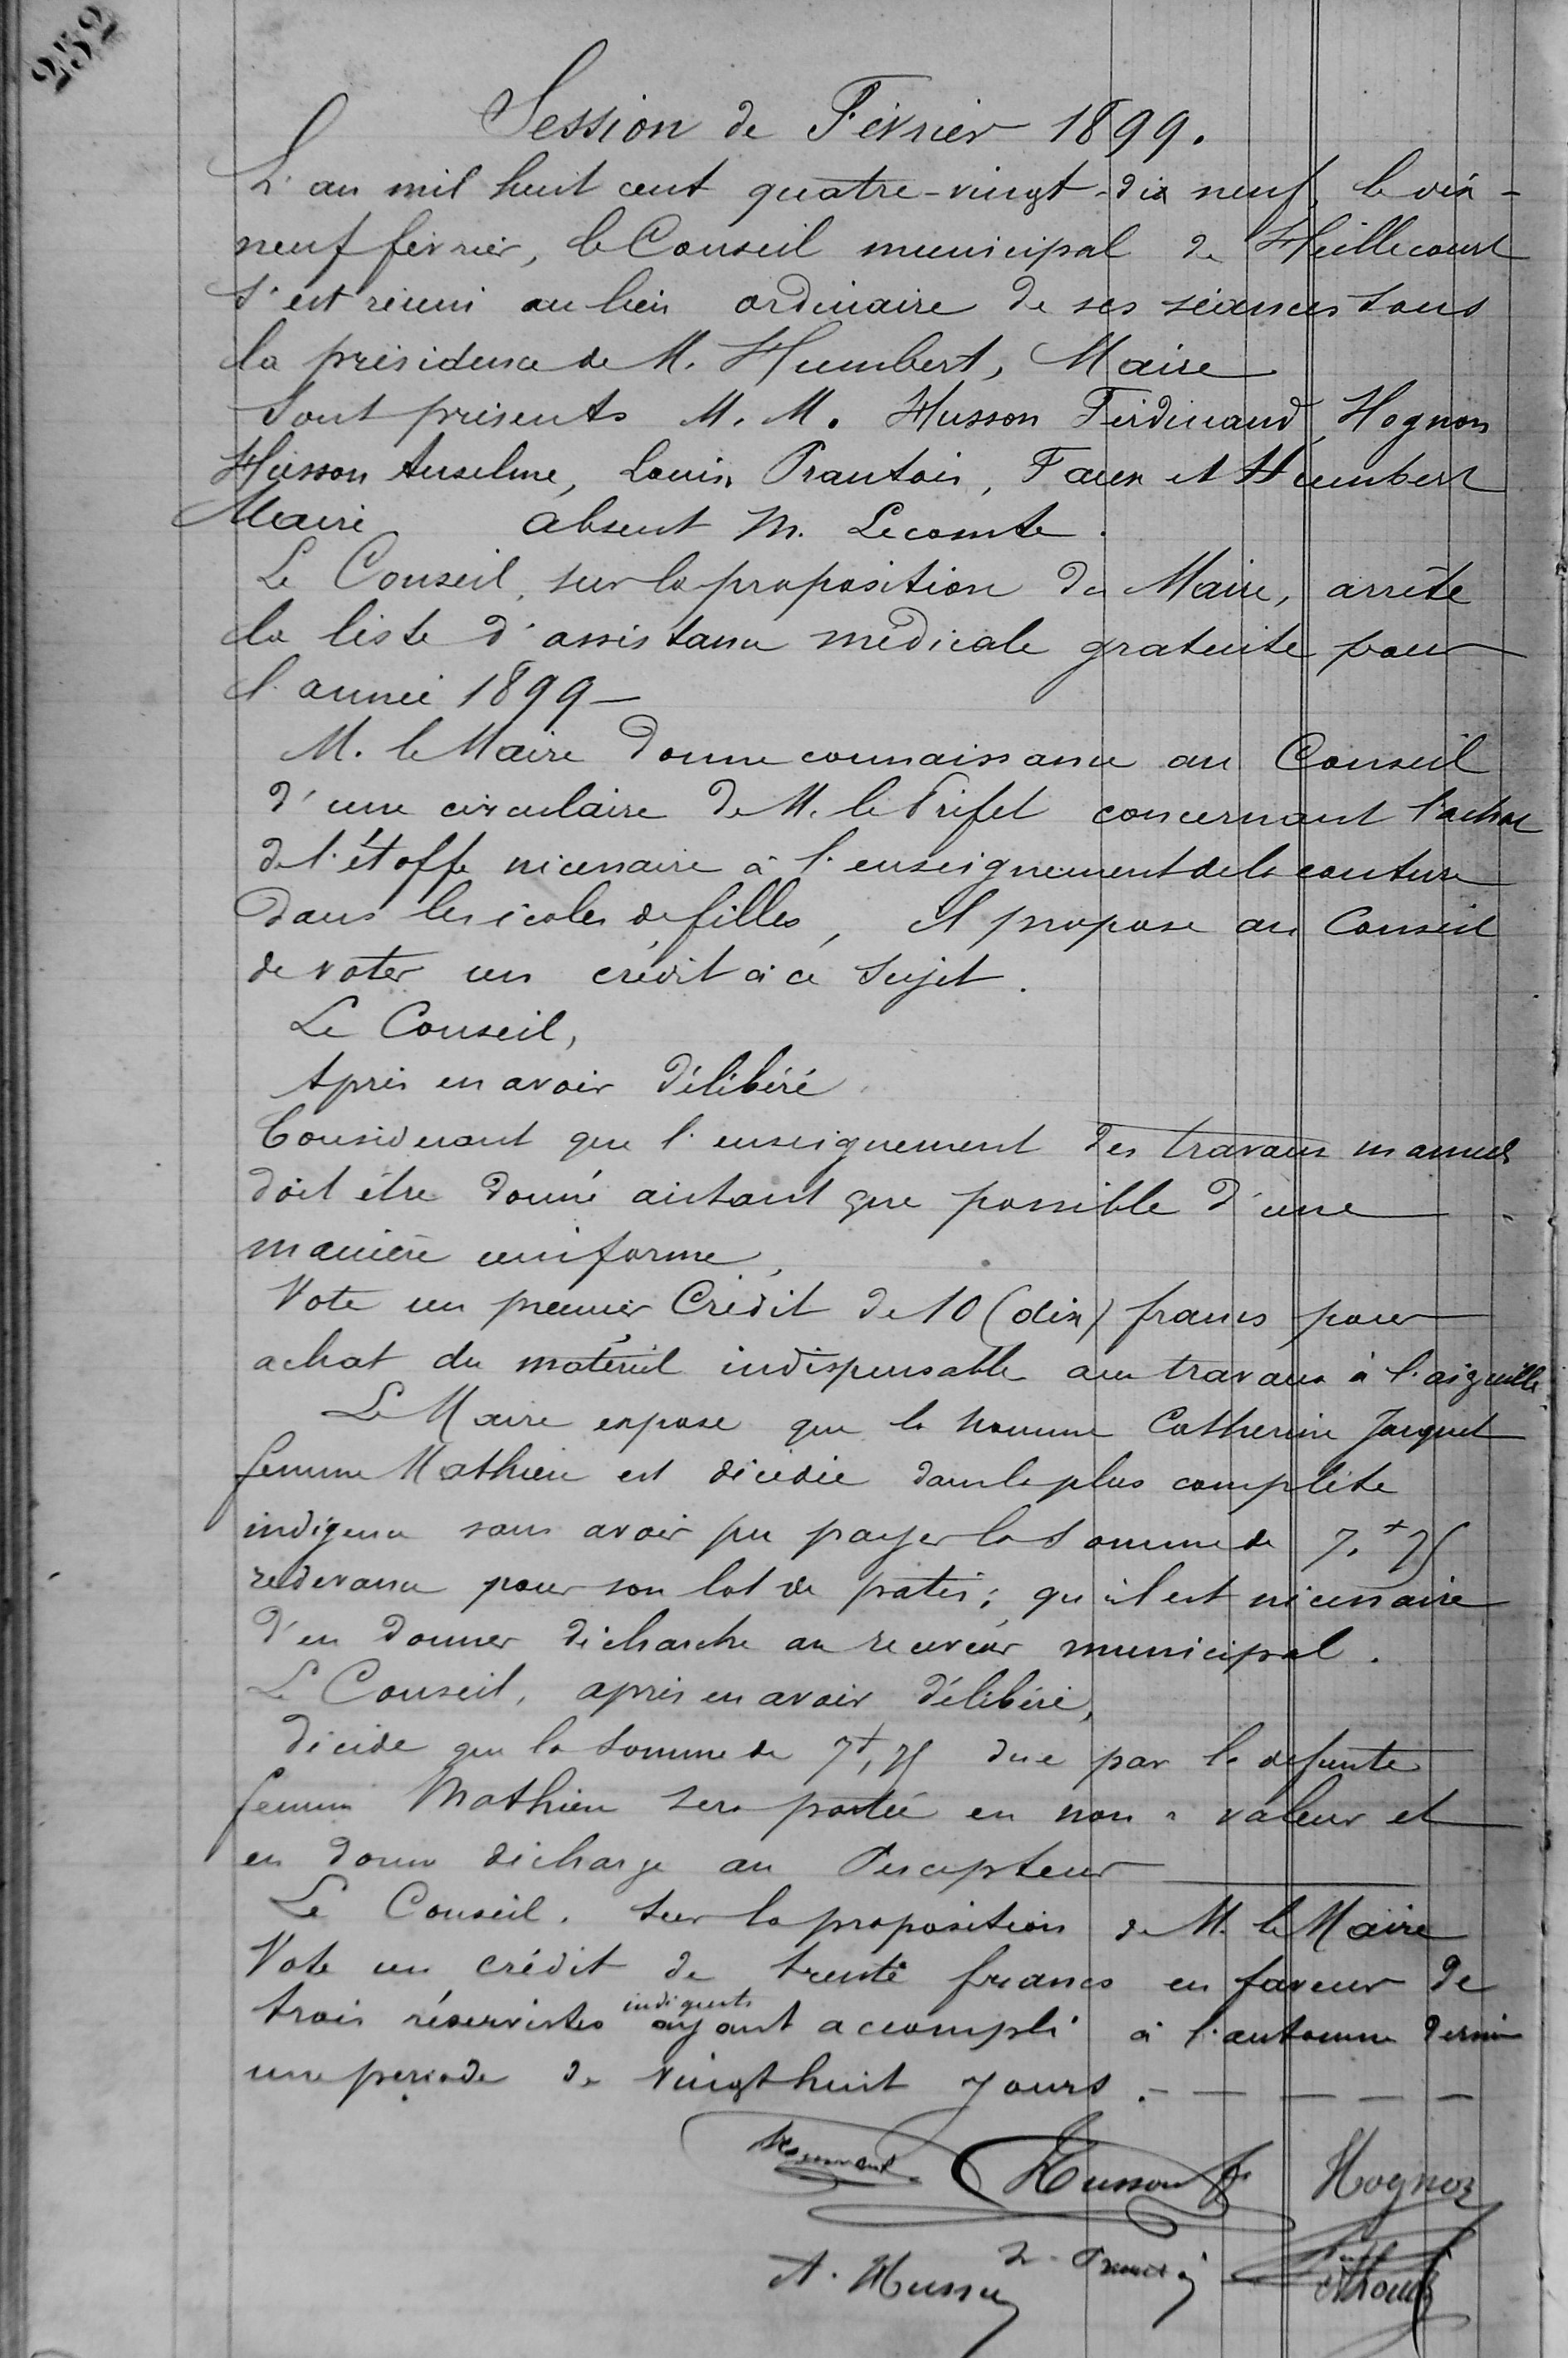 252
Session de Février 1899.
L'an mil huit cent quatre-vingt-dix neuf, le dix-
neuf février, le Conseil municipal de Heillecourt
s'est réuni au lieu ordinaire de ses séances sous
la présidence de M. Humbert, Maire
Sont présents M. M. Husson Ferdinand, Hognon
Husson Anselme, Louis Prantois, Faux et Humbert
Maire absent M. Lecomte.
Le Conseil, sur la proposition du Maire, arrête
la liste d'assistance médicale gratuite pour
l'année 1899 —
M. le Maire donne connaissance au Conseil
d'une circulaire de M. le Préfet concernant l'achat
de l'étoffe nécessaire à l'enseignement de la couture
dans les écoles de filles, et propose au Conseil
de voter un crédit à ce sujet.
Le Conseil,
Après en avoir délibéré
Considérant que l'enseignement des travaux manuels
doit être donné autant que possible d'une
manière uniforme,
Vote un premier Crédit de 10 (dix) francs pour
achat du matériel indispensable aux travaux à l'aiguille.
Le Maire expose que la nommée Catherine Jacquet
femme Mathieu est décédée dans la plus complète
indigence sans avoir pu payer la somme de 7,f 75
redevance pour son lot de patis; qu'il est nécessaire
d'en donner décharche au receveur municipal.
Le Conseil, après en avoir délibéré,
Décide que la somme de 7f,75 due par la défunte
femme Mathieu sera portée en non-valeur et
en donne décharge au Percepteur
Le Conseil, sur la proposition de M. le Maire
Vote un crédit de trente francs en faveur de
trois réservistes indigents ayant accompli à l'automne dernier
une période de vingt huit jours. — — — — —
Husson F Hognon
A. Husson